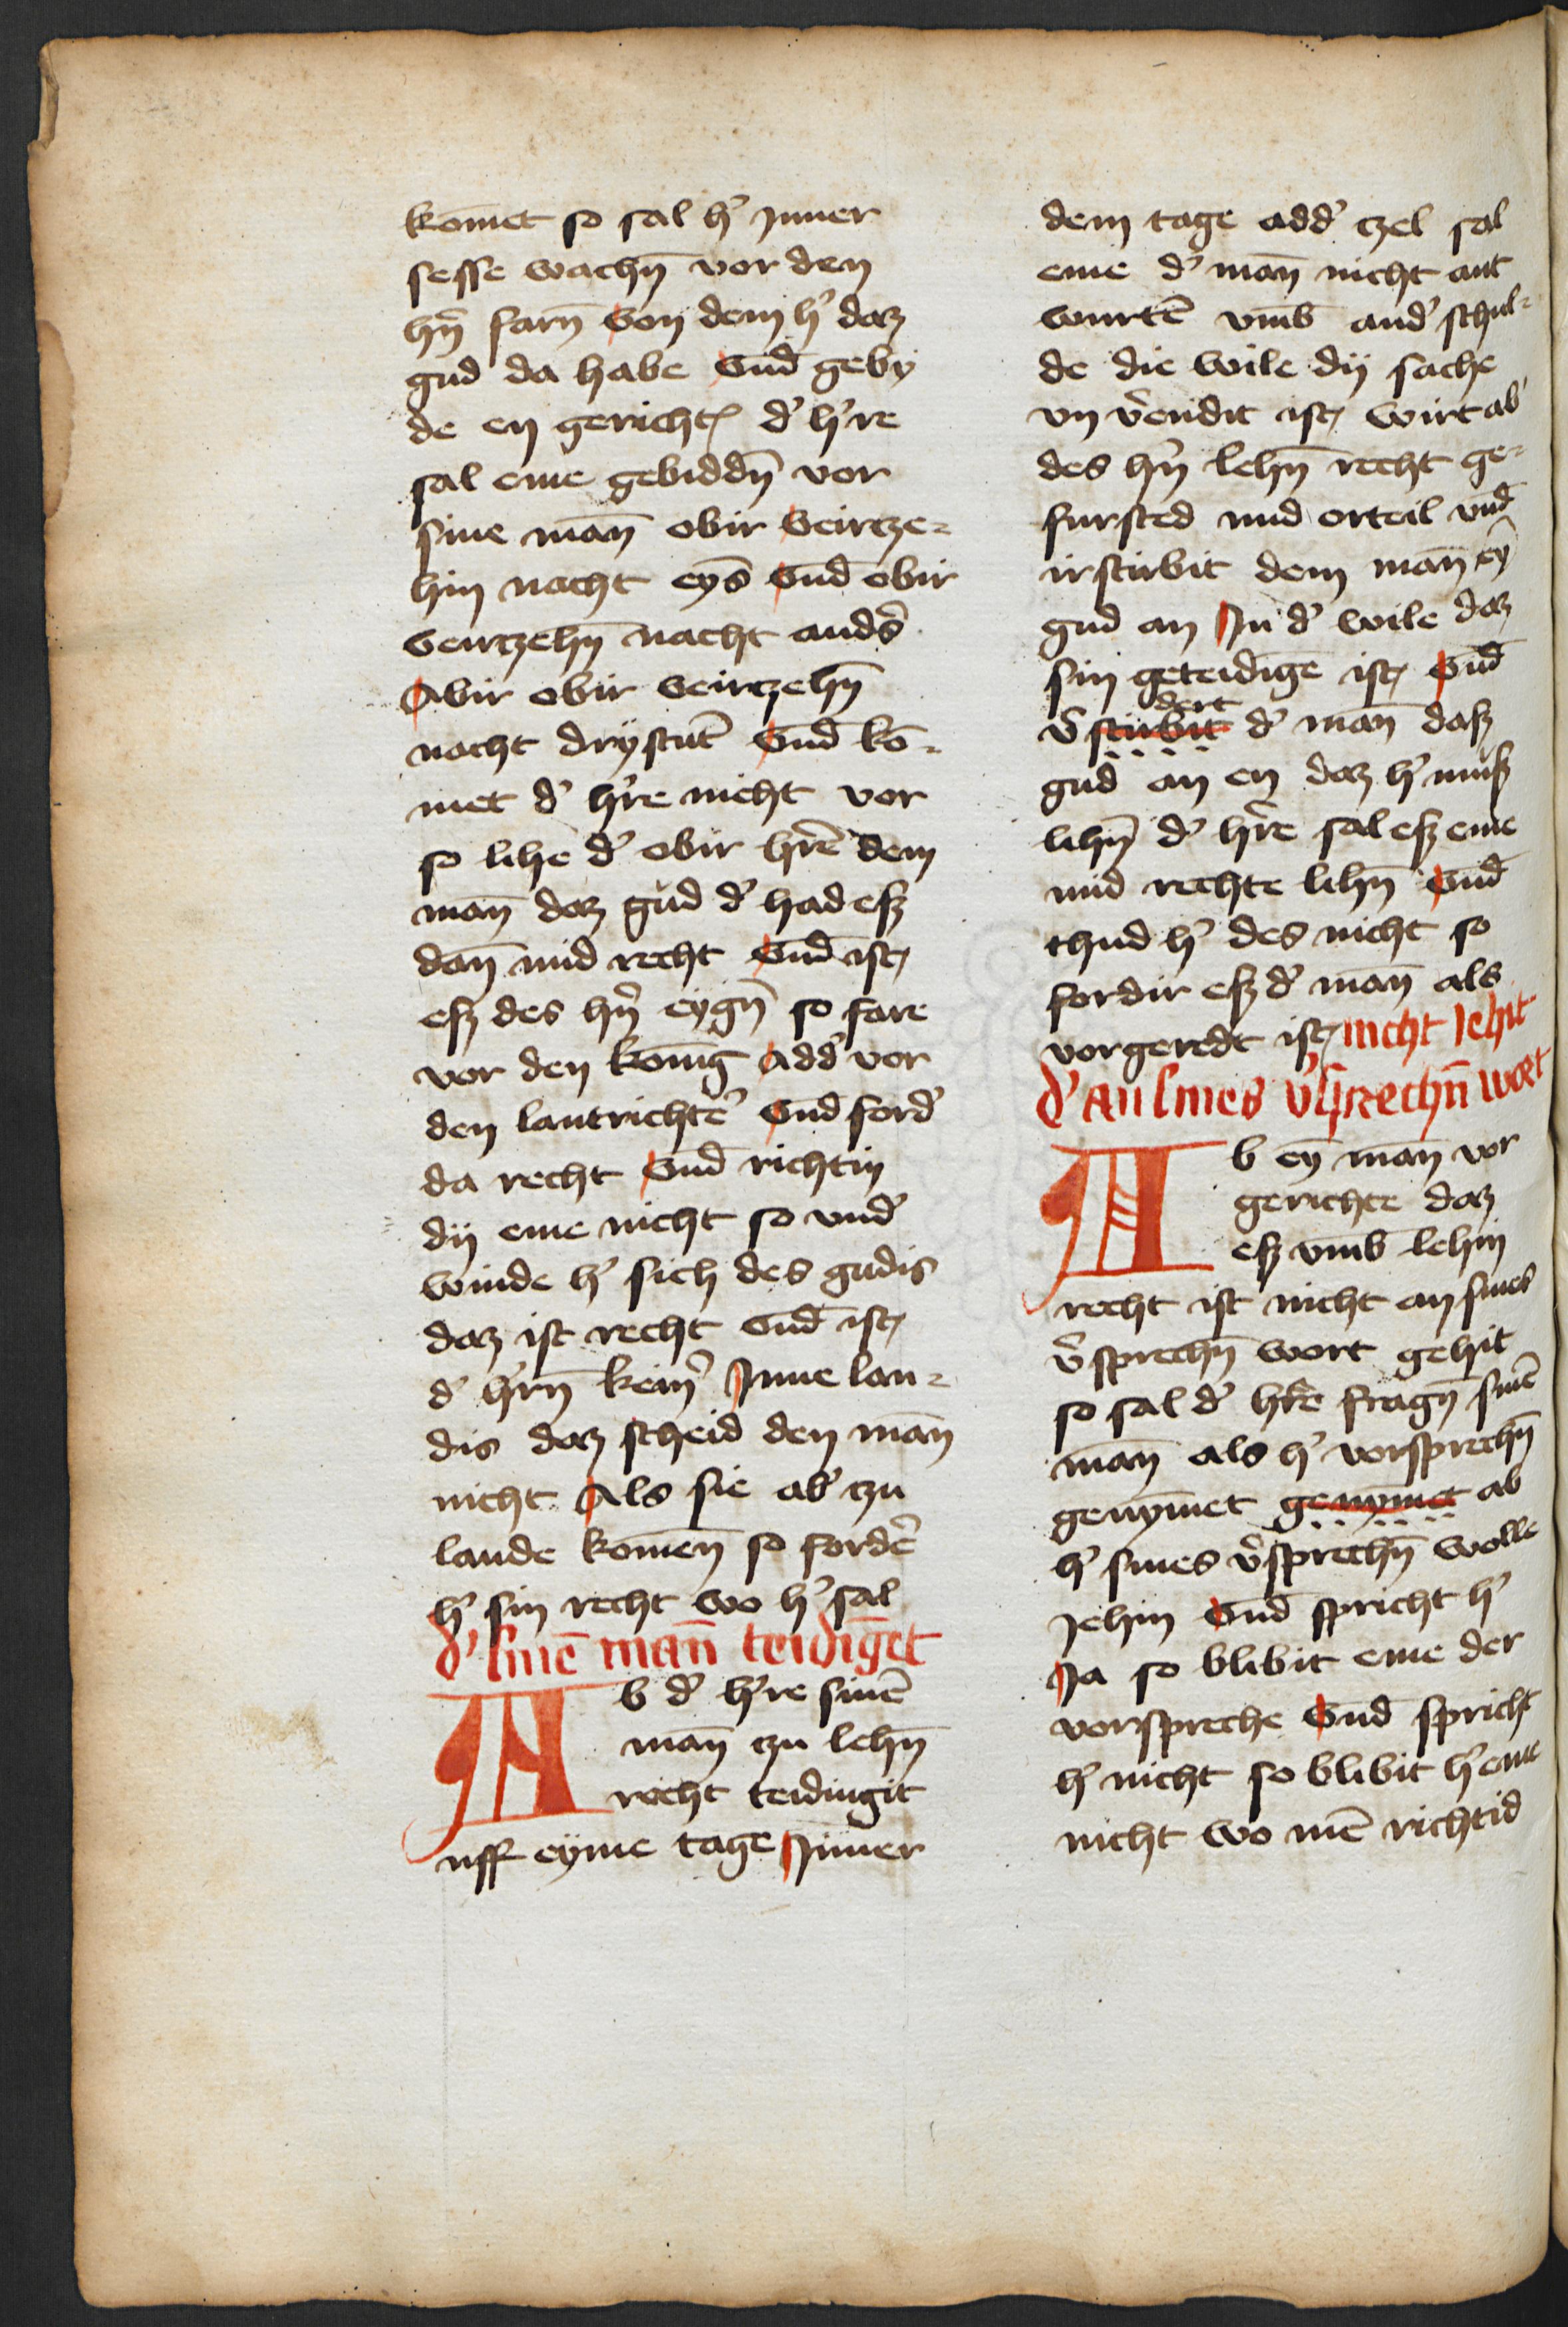 kom̄et so sal h' Jnner
sesse wachn̄ vor den
hn̄ farn̄ von dem h' daz
gud da habe vnd̄ geby
de en gericht d' h're
sal eme gebiddn̄ vor
sine man̄ obir veirtze-
hin nacht eyns̄ vnd̄ obir
veirtzehn̄ nacht ands'
Abir obir veirtzehn̄
nacht drystut̄ vnd̄ ko-
met d' h're nicht vor
so lihe d' obir hrē dem
man̄ daz gud d' had esz
dan̄ mid recht vnd̄ ist
esz des hn̄ eygn̄ so fare
vor den koniḡ add' vor
den lantrichte' vnd̄ ford'
da recht vnd̄ richtin
dij eme nicht so vnd'
winde h' sich des gudis
daz ist recht vnd̄ ist
d' h'rn̄ kein' Jnne lan-
dis daz scheid den man̄
nicht Als sie ab' tzu
lande komen̄ so forde'
h' sin recht wo h' sal
d' sinē man̄ teidiget
Ab d' h're sinē
man̄ tzu lehn̄
recht teidingit
uff eyme tage Jnner
dem tage add' tzel sal
eme d' man̄ nicht ant
wurtē vmb̄ and' schul-
de die wile dij sache
vn v'endit ist wirt ab'
des hn̄ lehn̄ recht ge-
fursted mid orteil vnd̄
irstirbit dem man̄ eȳ
gud an Jn d' wile daz
sin geteidigē ist vnd̄
dert
v'stirbit d' man̄ dasz
gud an en daz h' musz
lihn̄ d' h're sal esz eme
mid rechte lihn̄ vnd̄
thud h' des nicht so
fordir esz d' man̄ als
vorgeredt ist nicht Jehit
d' an sines v'sprechn̄ wort
Ab eȳ man̄ vor
gerichte daz
esz vmb̄ lehin
recht ist nicht an sines
v'sprechn̄ wort gehit
so sal d' h're fragn̄ sinē
man̄ als h' vorsprechn̄
genym̄et genymet ab
h' sines v'sprechn̄ wolle
Jehin vnd̄ spricht h'
Ja so blibit eme der
vorspreche vnd̄ spricht
h' nicht so blibit h' eme
nicht wo mē richtid